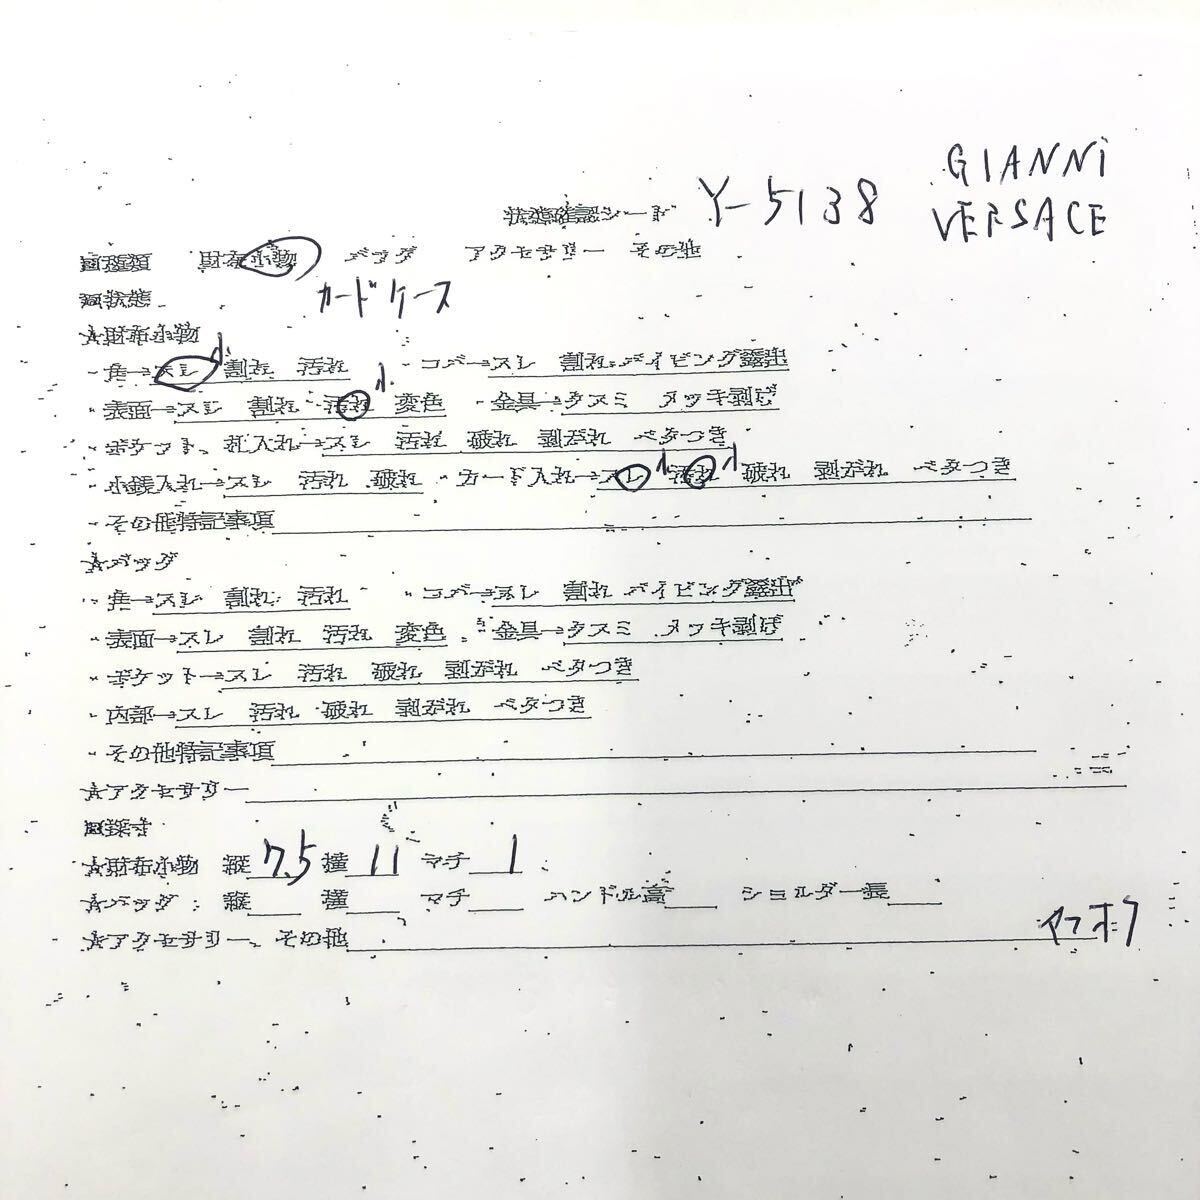 状態確認シート Y-5138 GIANNi
VERSACE
回種類 財布小物 バッグ アクセサリー その他
回状態 カードケース
★財布小物
・角→スレ小 割れ 汚れ ・コバ→スレ 割れ パイピング露出
・表面→スレ 割れ 汚れ小 変色 ・金具→クスミ メッキ剥げ
・ポケット、札入れ→スレ 汚れ 破れ 剥がれ ベタつき
・小銭入れ→スレ 汚れ 破れ ・カード入れ→スレ小 汚れ小 破れ 剥がれ ベタつき
・その他特記事項
★バッグ
・角→スレ 割れ 汚れ ・コバ→スレ 割れ パイピング露出
・表面→スレ 割れ 汚れ 変色 ・金具→クスミ メッキ剥げ
・ポケット→スレ 汚れ 破れ 剥がれ ベタつき
・内部→スレ 汚れ 破れ 剥がれ ベタつき
・その他特記事項
★アクセサリー
回採寸
★財布小物 縦 7.5 横 11 マチ 1
★バッグ 縦 横 マチ ハンドル高 ショルダー長
★アクセサリー、その他 ヤフオク